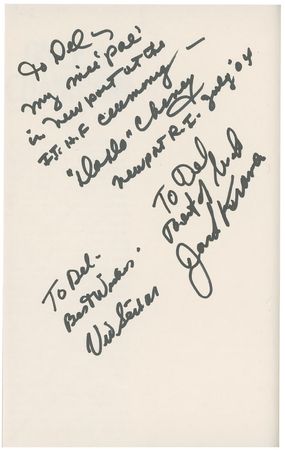 To Del -
my nice pal
in newport at the
I.T.H.F ceremony -
"Dodo" Cheney
newport R.I. July '04
To Del
Best of luck
Jack Kramer
To Del.
Best Wishes.
Vic Seixas